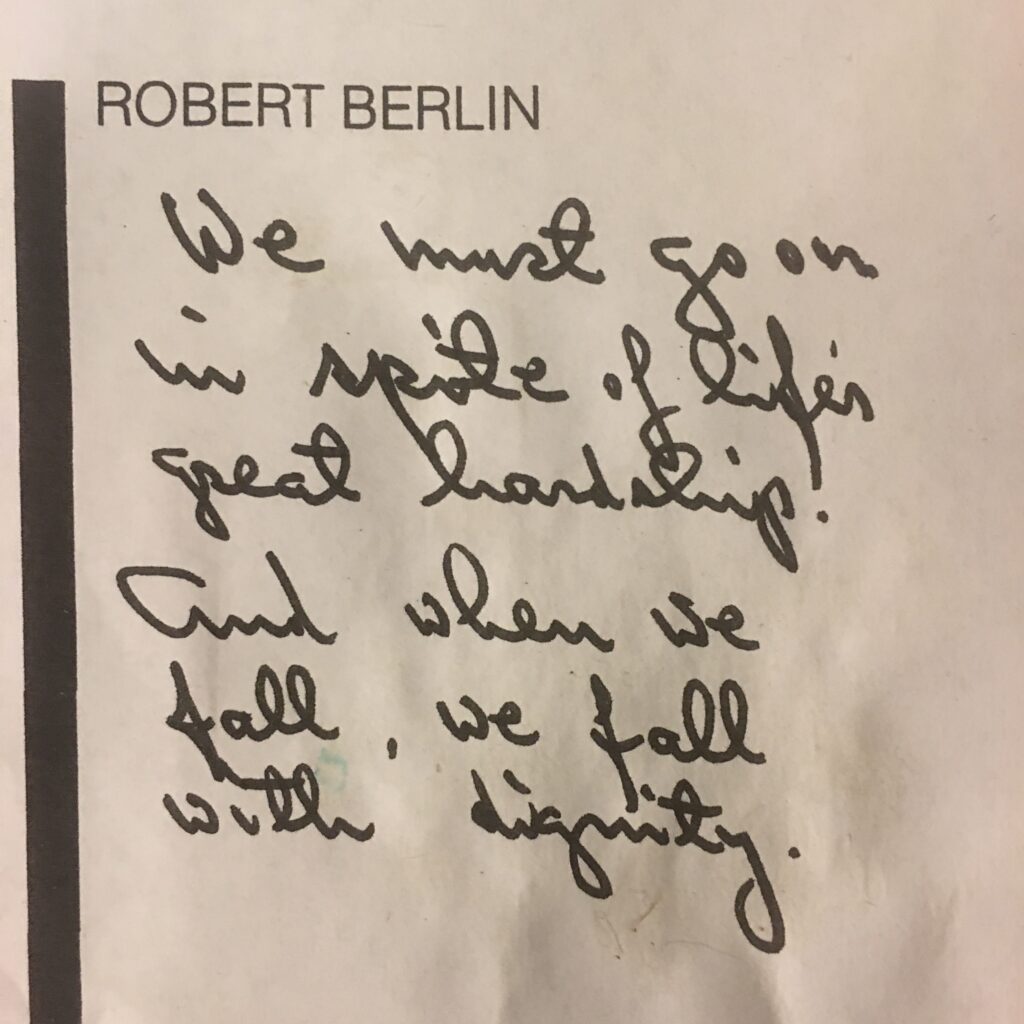 ROBERT BERLIN
We must go on
in spite of life's
great hardship.
And when we
fall, we fall
with dignity.